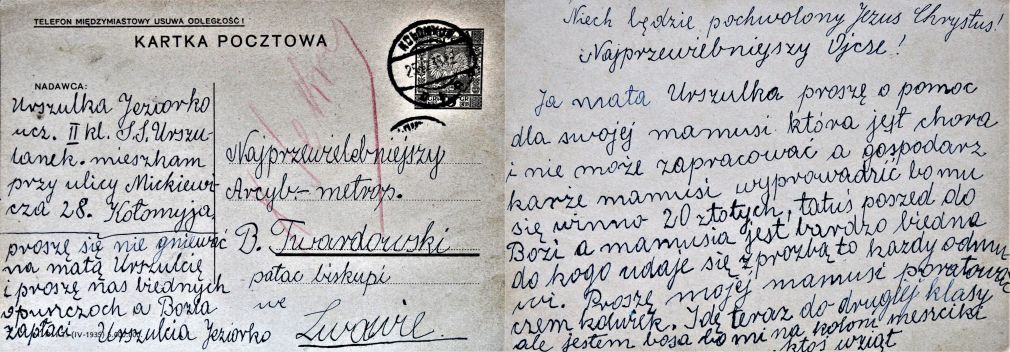 TELEFON MIĘDZYMIASTOWY USUWA ODLEGŁOŚĆ!
KARTKA POCZTOWA
NADAWCA:
Urszulka Jeziorko
ucz. II kl. S.S. Urszu-
lanek. mieszkam
przy ulicy Mickiewi
cza 28. Kołomyja,
proszę się nie gniewać
na małą Urszulcię
i proszę nas biednych
opurczoch a Bozia
zapłaci Urszulcia Jeziorko
(IV-1935)
Najprzewielebniejszy
Arcyb.- metrop.
B. Twardowski
pałac biskupi
we
Lwowie.
Niech będzie pochwolony Jezus Chrystus!
Najprzewielebniejszy Ojcse!
Ja mała Urszulka proszę o pomoc
dla swojej mamusi która jest chora
i nie może zapracować a gospodarz
karze mamusi wyprowadzić bo mu
się winno 20 złotych, tatuś poszed do
Bozi a mamusia jest bardzo biedna
do kogo udaje się z prozbą to kazdy odmu
wi. Proszę mojej mamusi poratować
czem kolwiek. Idę teraz do drugiej klasy
ale jestem bosa bo mi na koloni meszcika
ktoś wziął